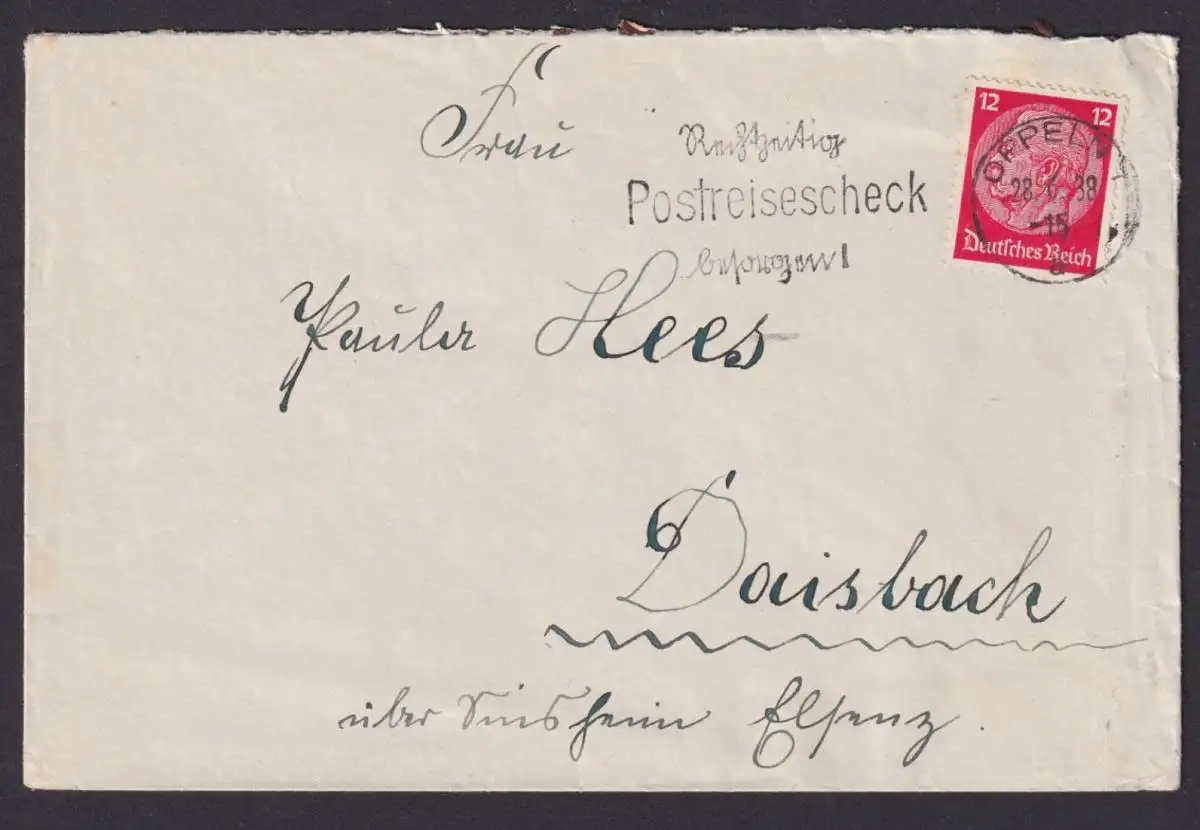 12 12
Deutsches Reich
OPPELN 1
28.6.38
-15
a
Rechtzeitig
Postreisescheck
besorgen!
Frau
Paula Hees
Daisbach
über Sinsheim Elsenz.